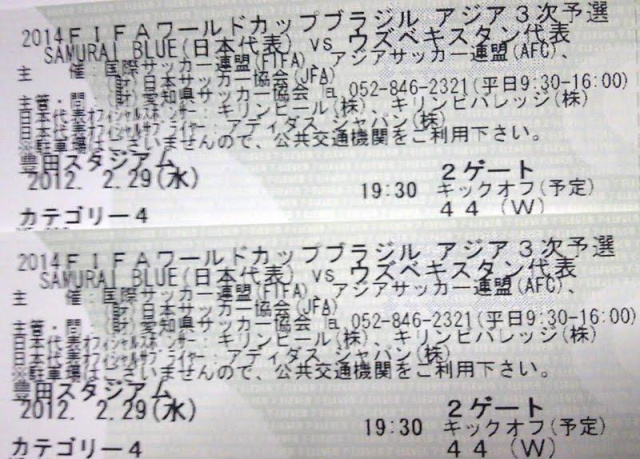 2014ＦＩＦＡワールドカップブラジル アジア３次予選
SAMURAI BLUE(日本代表) vs ウズベキスタン代表
主　催：国際サッカー連盟(FIFA)、アジアサッカー連盟(AFC)、
(財)日本サッカー協会(JFA)
主管・問：(財)愛知県サッカー協会 ℡ 052-846-2321(平日9:30-16:00)
日本代表オフィシャルスポンサー：キリンビール(株)、キリンビバレッジ(株)
日本代表オフィシャルサプライヤー：アディダス ジャパン(株)
※駐車場はございませんので、公共交通機関をご利用下さい。
豊田スタジアム
2ゲート
2012. 2.29(水)
19:30 キックオフ(予定)
カテゴリー4
44 (W)
2014ＦＩＦＡワールドカップブラジル アジア３次予選
SAMURAI BLUE(日本代表) vs ウズベキスタン代表
主　催：国際サッカー連盟(FIFA)、アジアサッカー連盟(AFC)、
(財)日本サッカー協会(JFA)
主管・問：(財)愛知県サッカー協会 ℡ 052-846-2321(平日9:30-16:00)
日本代表オフィシャルスポンサー：キリンビール(株)、キリンビバレッジ(株)
日本代表オフィシャルサプライヤー：アディダス ジャパン(株)
※駐車場はございませんので、公共交通機関をご利用下さい。
豊田スタジアム
2ゲート
2012. 2.29(水)
19:30 キックオフ(予定)
カテゴリー4
44 (W)